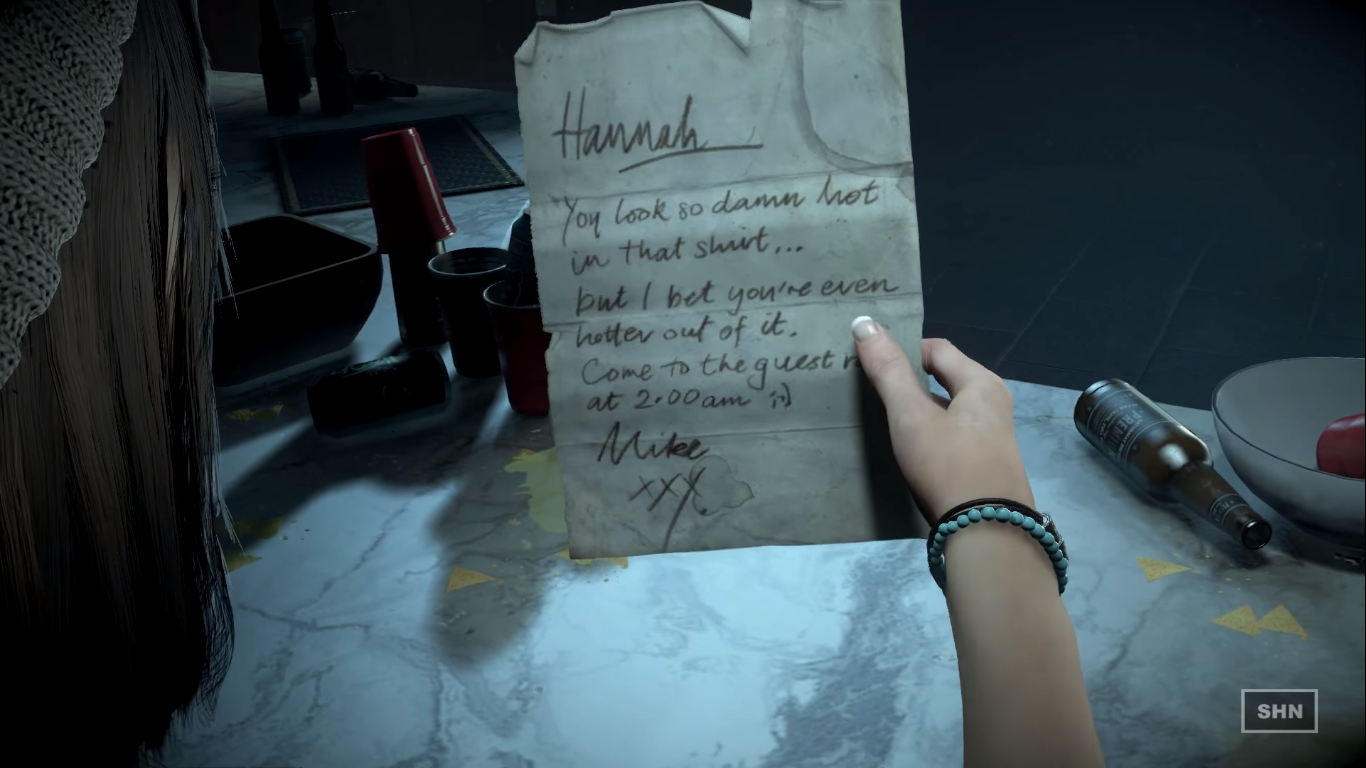 Hannah
You look so damn hot
in that shirt...
but I bet you're even
hotter out of it.
Come to the guest
at 2.00am ;)
Mike
xxx
SHN